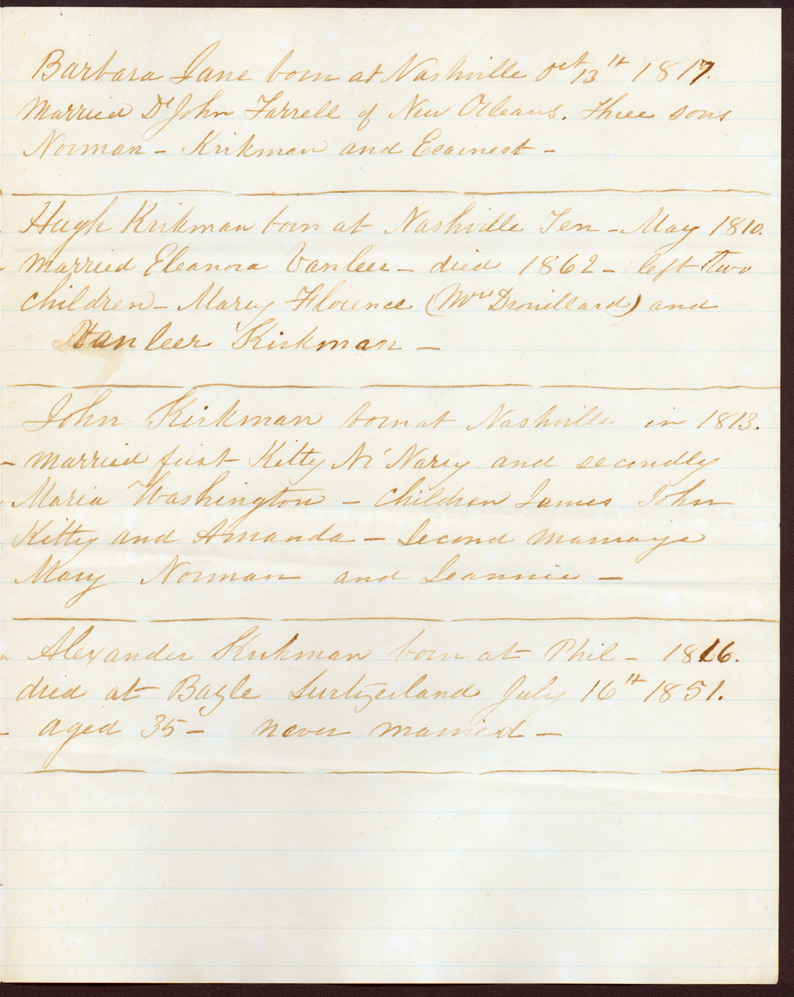 Barbara Jane born at Nashville Oct 13th 1817.
Married Dr John Farrell of New Orleans. Three sons
Norman - Krikman and Eearnest -
Hugh Krikman born at Nashville Ten - May 1810.
married Eleanora Vanleer - died 1862 - left two
children - Marey Florence (Mrs Drouillard) and
Van leer Kirkman -
John Kirkman born at Nashville in 1813.
- married first Kitty Mc Narey and secondly
Maria Washington - children James John
Kitty and Amanda - Second marriage
Mary Norman and Leannie -
Alexander Kirkman born at Phil - 1816.
died at Bazle Surtzerland July 16th 1851.
- aged 35 - never married -